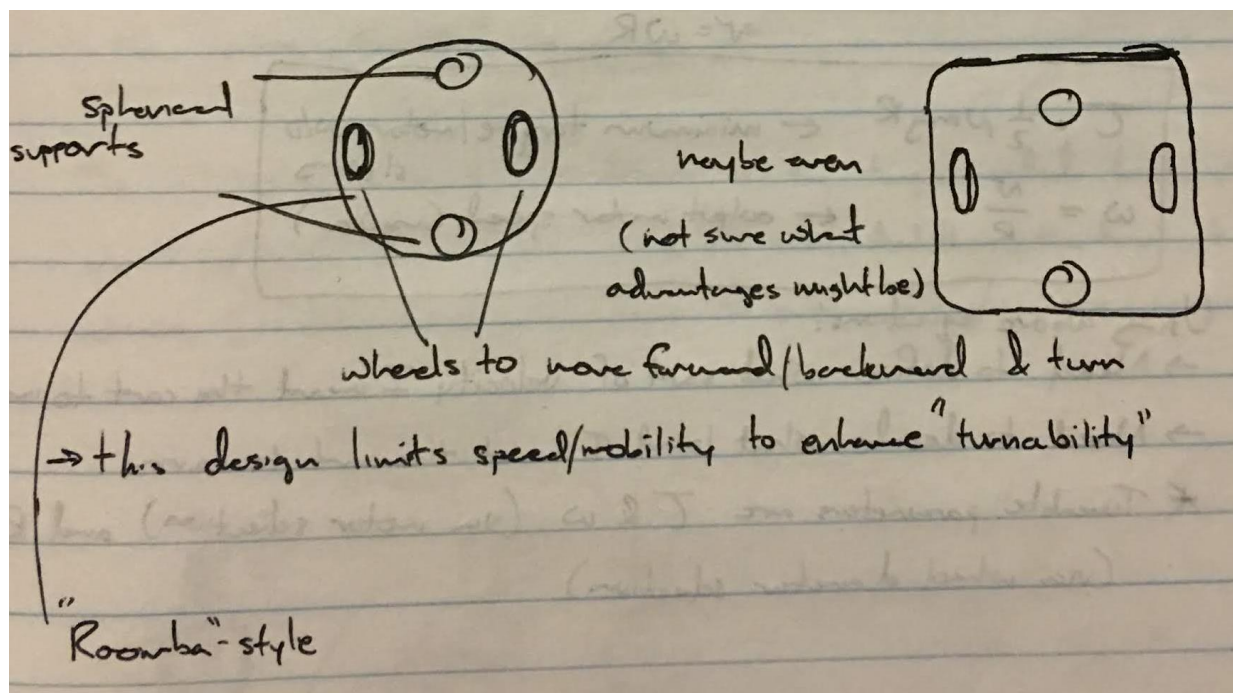 spherical
supports
maybe even
(not sure what
advantages might be)
wheels to move forward/backward & turn
→ this design limits speed/mobility to enhance "turnability"
"Roomba"-style